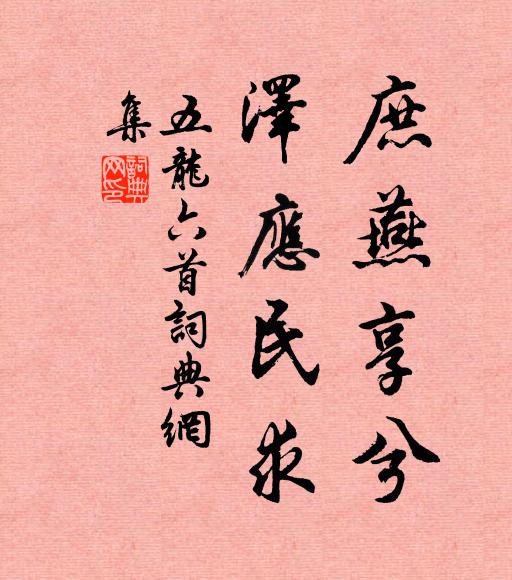 庶燕享兮
澤應民求
五龍六首詞典網
集
詞典
网印